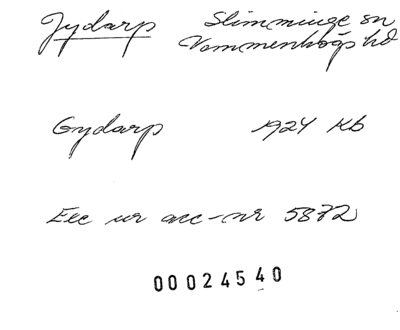 Jydarp Slimminge sn
Vemmenhögs hd
Gydarp 1924 Kb
Exc ur acc-nr 5872
00024540